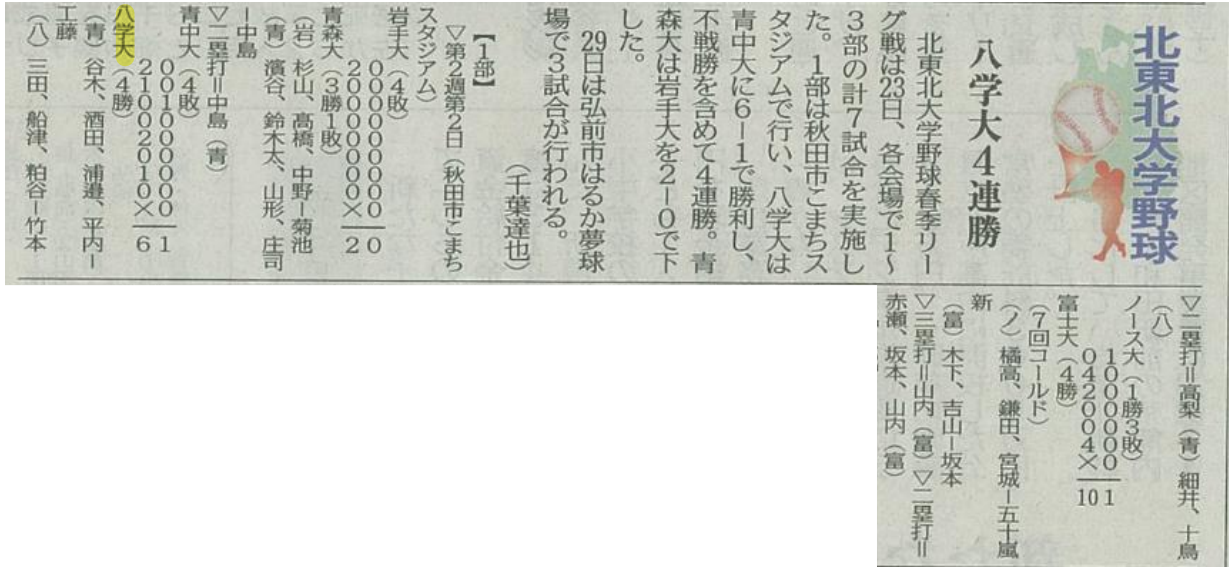 北東北大学野球
八学大4連勝
北東北大学野球春季リー
グ戦は23日、各会場で1〜
3部の計7試合を実施し
た。1部は秋田市こまちス
タジアムで行い、八学大は
青中大に6ー1で勝利し、
不戦勝を含めて4連勝。青
森大は岩手大を2ー0で下
した。
29日は弘前市はるか夢球
場で3試合が行われる。
(千葉達也)
【1部】
▽第2週第2日(秋田市こまち
スタジアム)
岩手大(4敗)
000000000ー0
20000000×ー2
青森大(3勝1敗)
(岩)杉山、高橋、中野ー菊池
(青)濱谷、鈴木太、山形、庄司
ー中島
▽二塁打=中島(青)
青中大(4敗)
001000000ー1
21002010×ー6
八学大(4勝)
(青)谷木、酒田、浦邉、平内ー
工藤
(八)三田、船津、粕谷ー竹本
▽二塁打=高梨(青)細井、十鳥
(八)
ノース大(1勝3敗)
1000000ー1
042004×ー10
富士大(4勝)
(7回コールド)
(ノ)橘高、鎌田、宮城ー五十嵐
新
(富)木下、吉山ー坂本
▽三塁打=山内(富)▽二塁打=
赤瀬、坂本、山内(富)